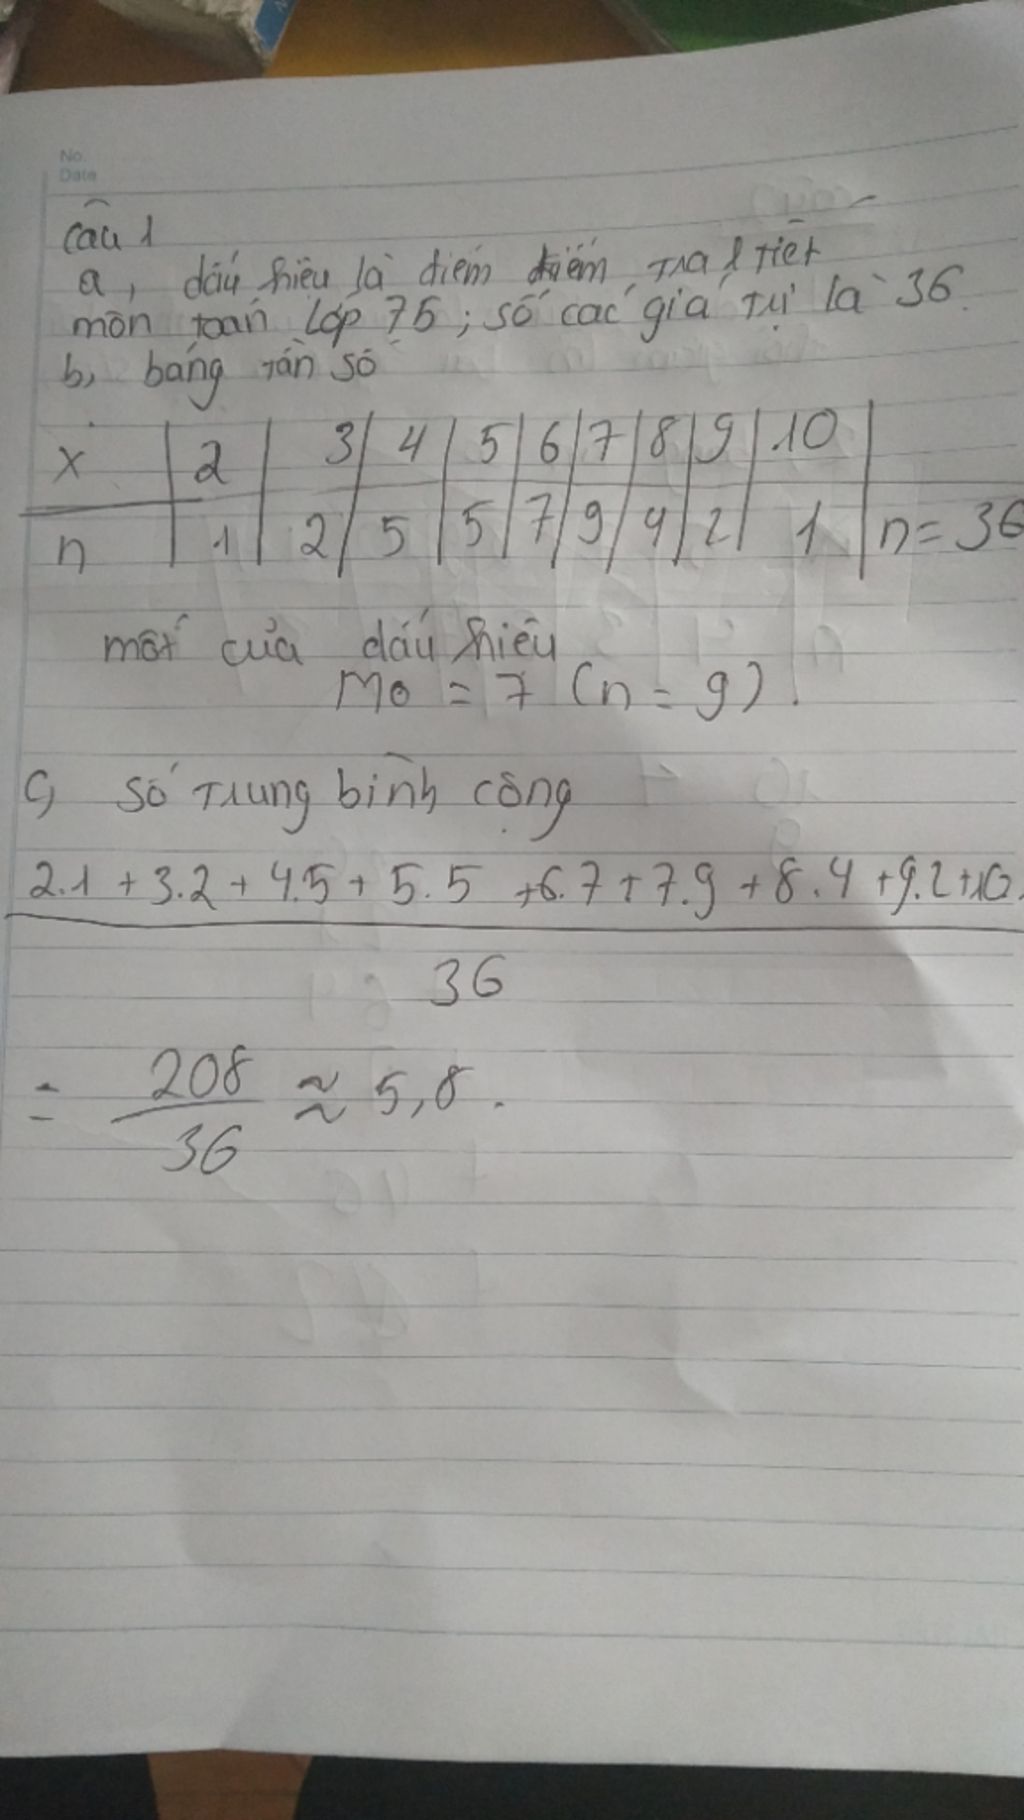 No.
Date
Câu 1
a, dấu hiệu là điểm kiểm tra 1 tiết
môn toán lớp 75; số các giá trị là 36.
b, bảng tần số
x 2 3 4 5 6 7 8 9 10
n 1 2 5 5 7 9 4 2 1 n = 36
mốt của dấu hiệu
Mo = 7 (n = 9).
c, số trung bình cộng
2.1 + 3.2 + 4.5 + 5.5 + 6.7 + 7.9 + 8.4 + 9.2 + 10.
36
= 208 ≈ 5,8.
36